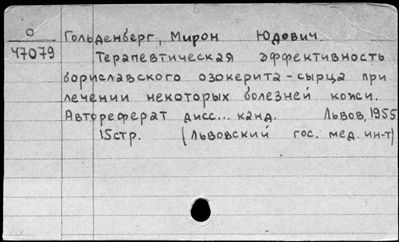 О
47079
Гольденберг, Мирон Юдович.
Терапевтическая эффективность
бориславского озокерита-сырца при
лечении некоторых болезней кожи.
Автореферат дисс... канд. Львов, 1955
15стр. (Львовский гос. мед. ин-т)